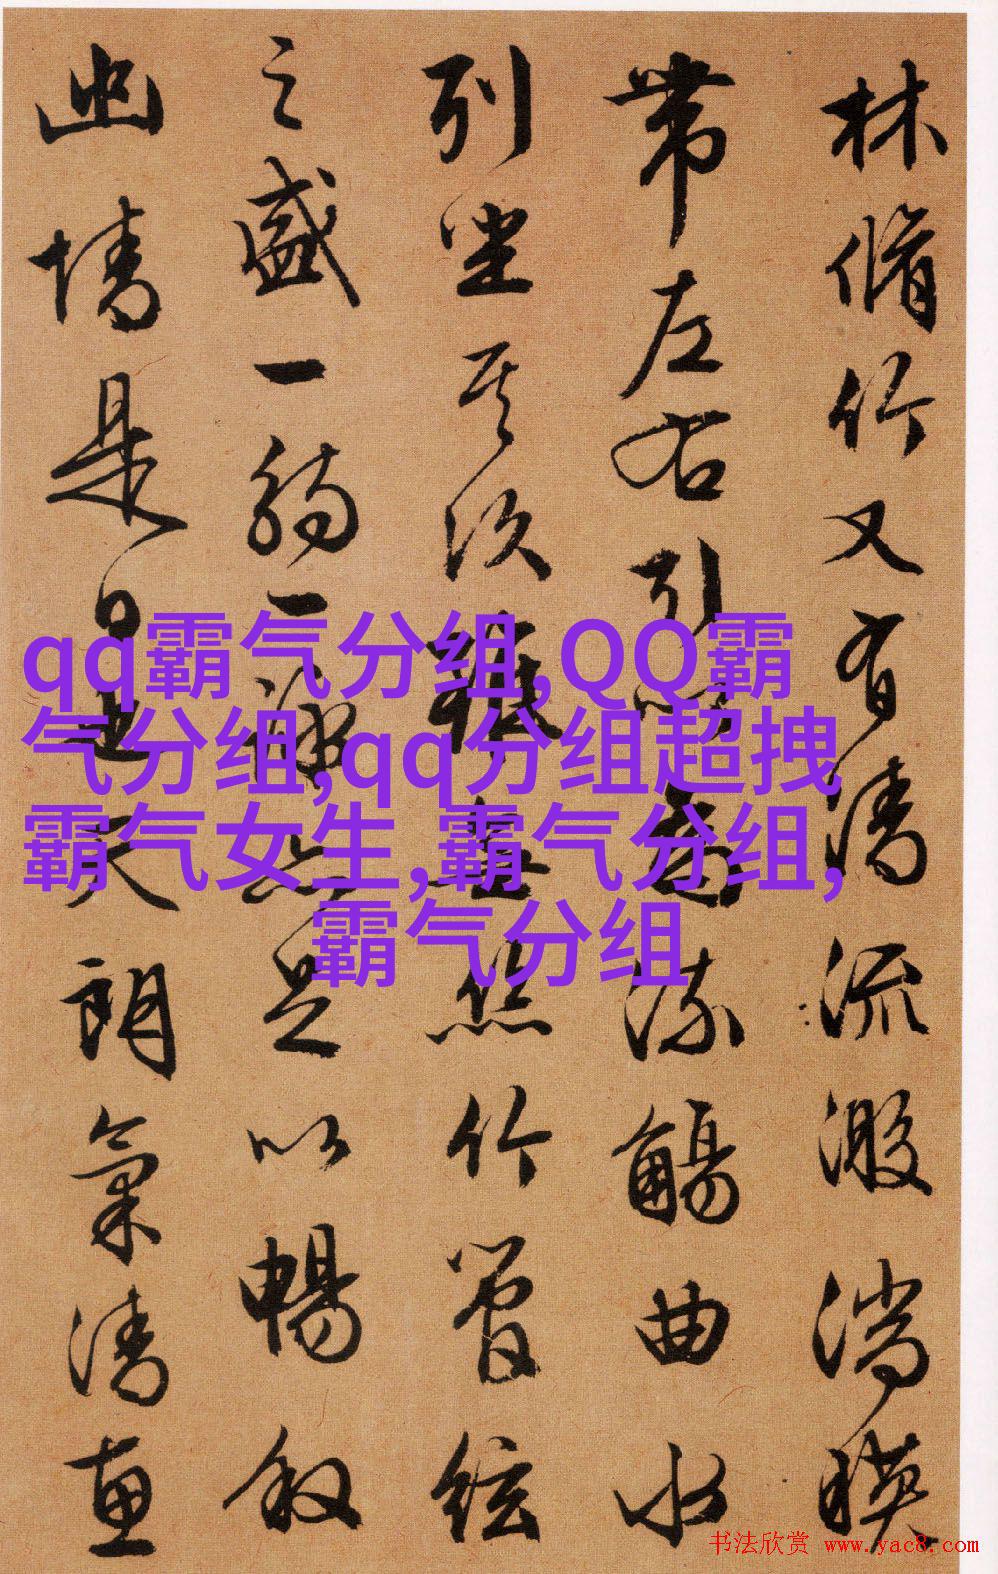 林脩竹又有清流激湍映
帶左右引以為流觴曲水
列坐其次雖無絲竹管絃
之盛一觴一詠亦足以暢敘
幽情是日也天朗氣清惠
qq霸气分组,QQ霸
气分组,qq分组超拽
霸气女生,霸气分组,
霸气分组
书法欣赏 www.yac8.com